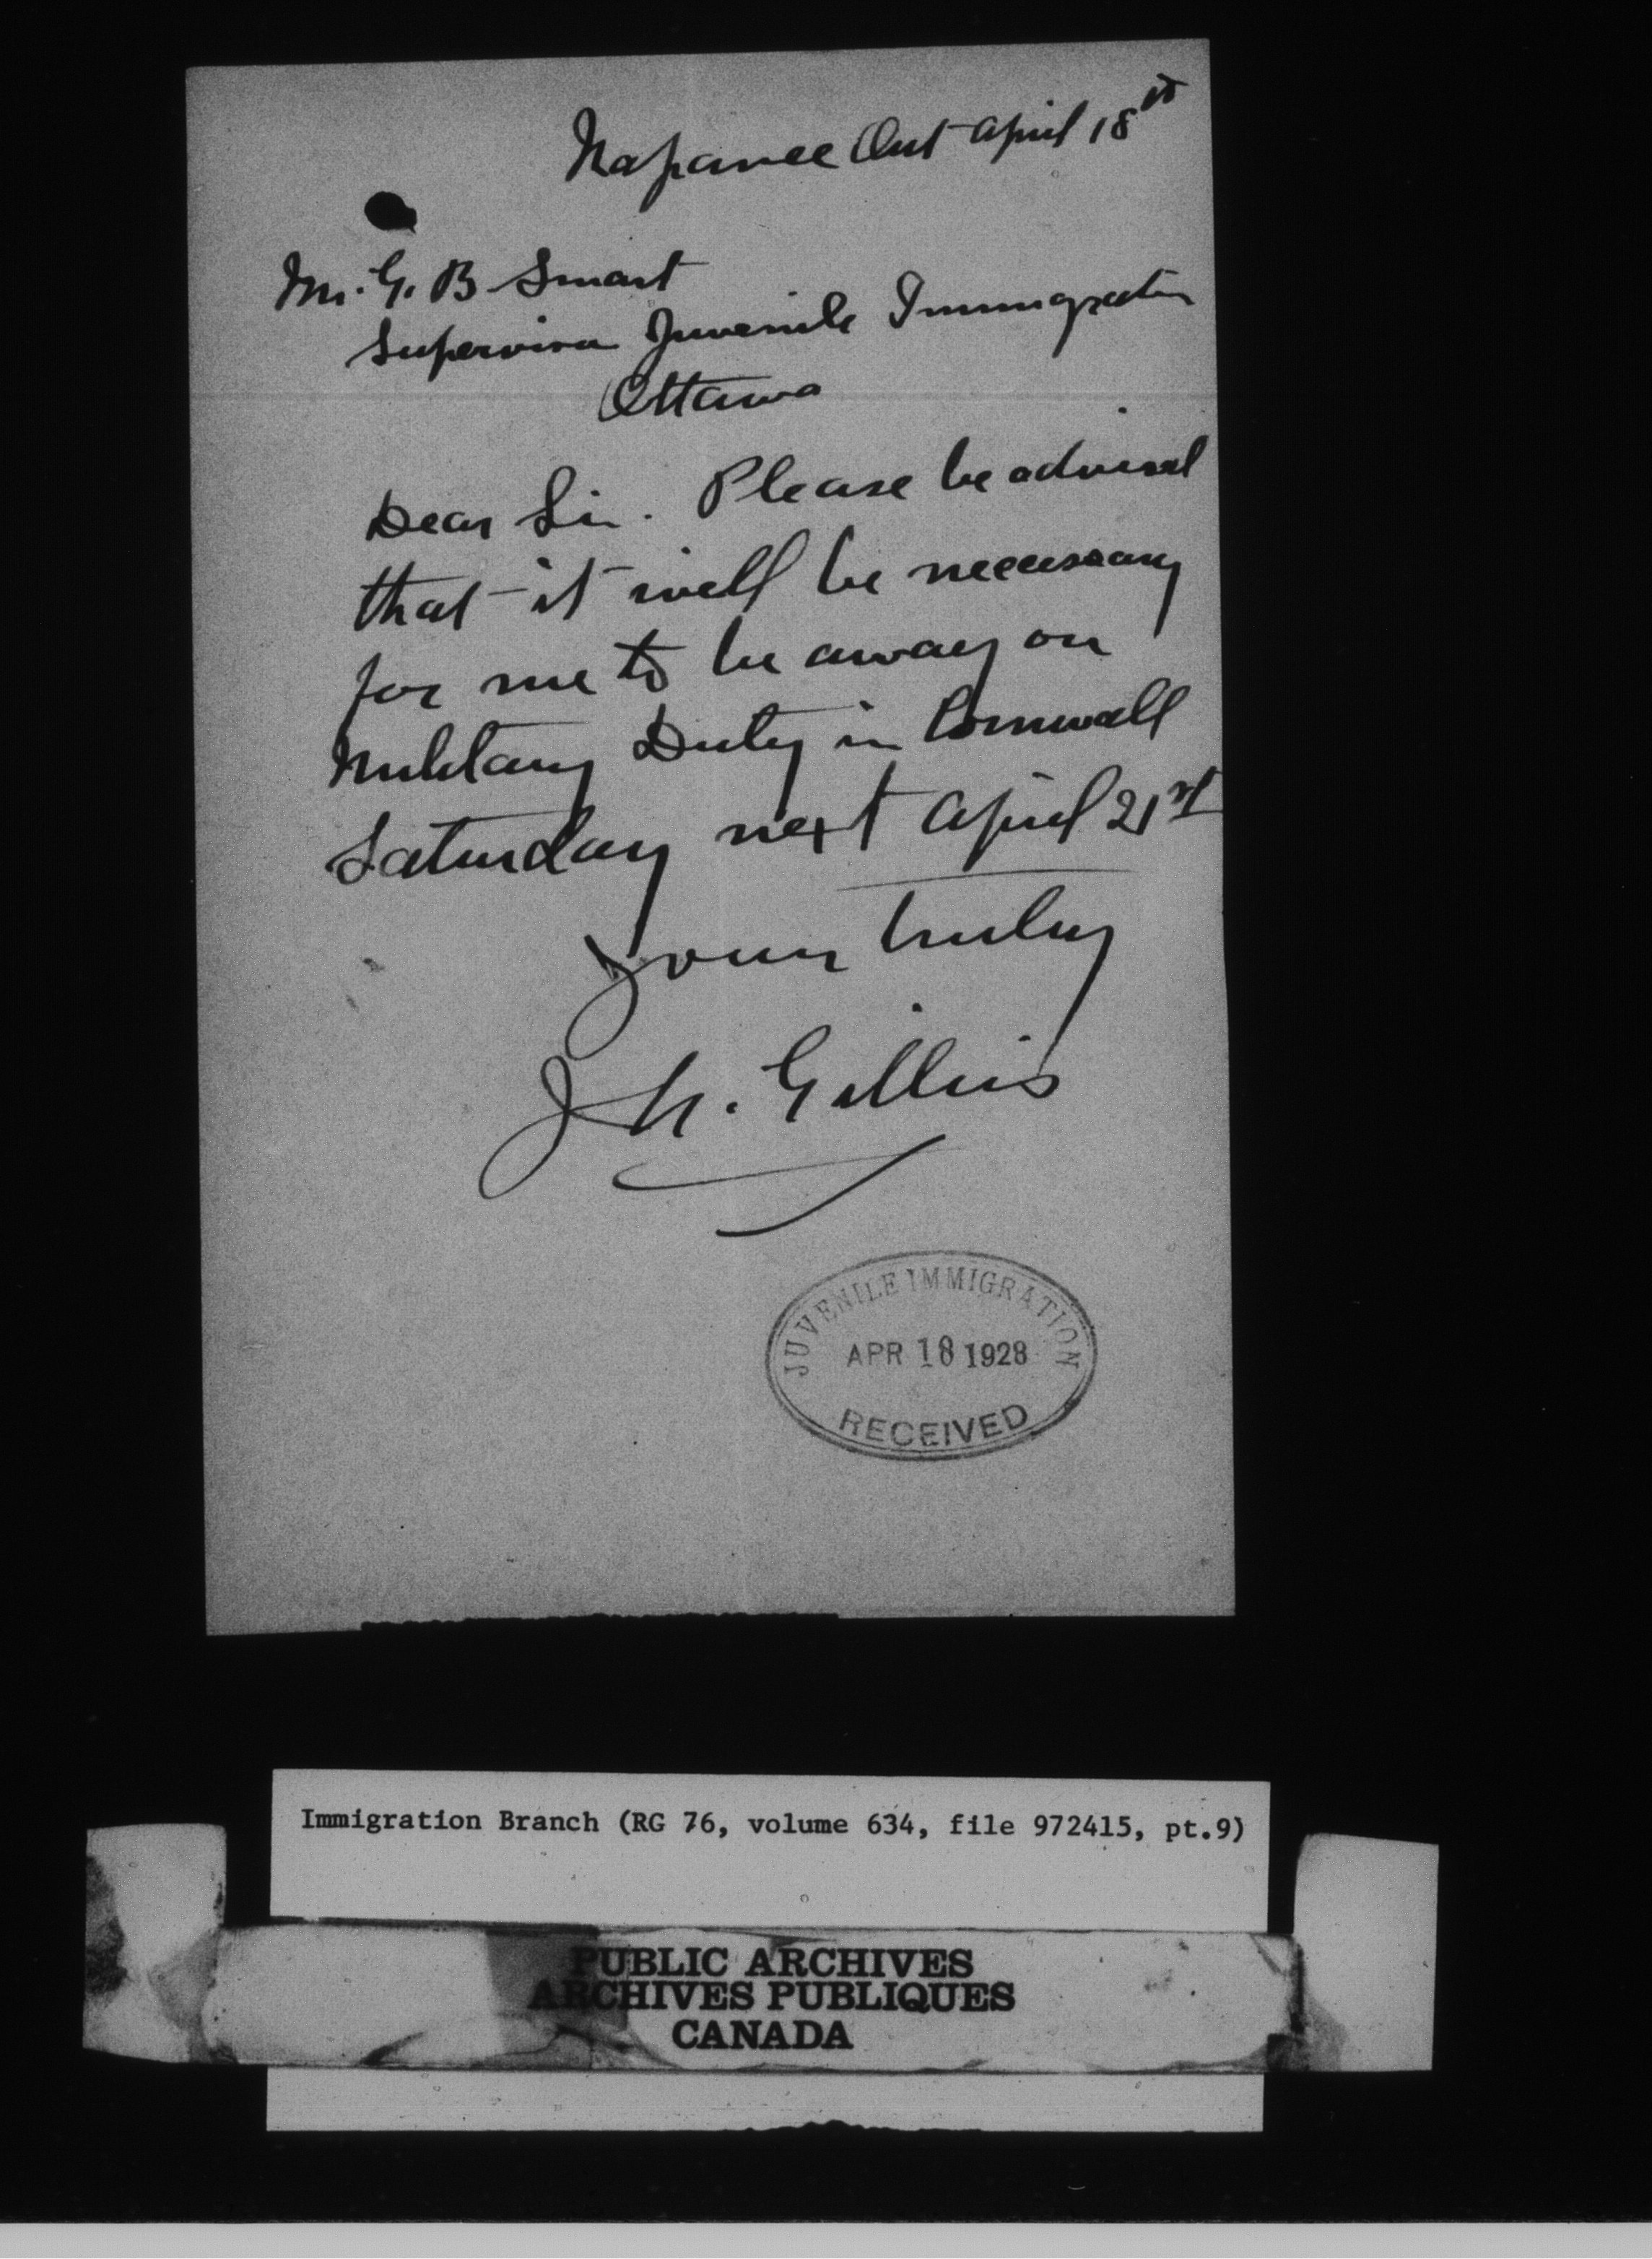 Napanee Ont April 18th
Mr. G. B Smart
Supervisor Juvenile Immigration
Ottawa
Dear Sir. Please be advised
that it will be necessary
for me to be away on
Military Duty in Cornwall
Saturday next April 21st
Yours truly
Gillies
JUVENILE IMMIGRATION
APR 18 1928
RECEIVED
Immigration Branch (RG 76, volume 634, file 972415, pt.9)
PUBLIC ARCHIVES
ARCHIVES PUBLIQUES
CANADA